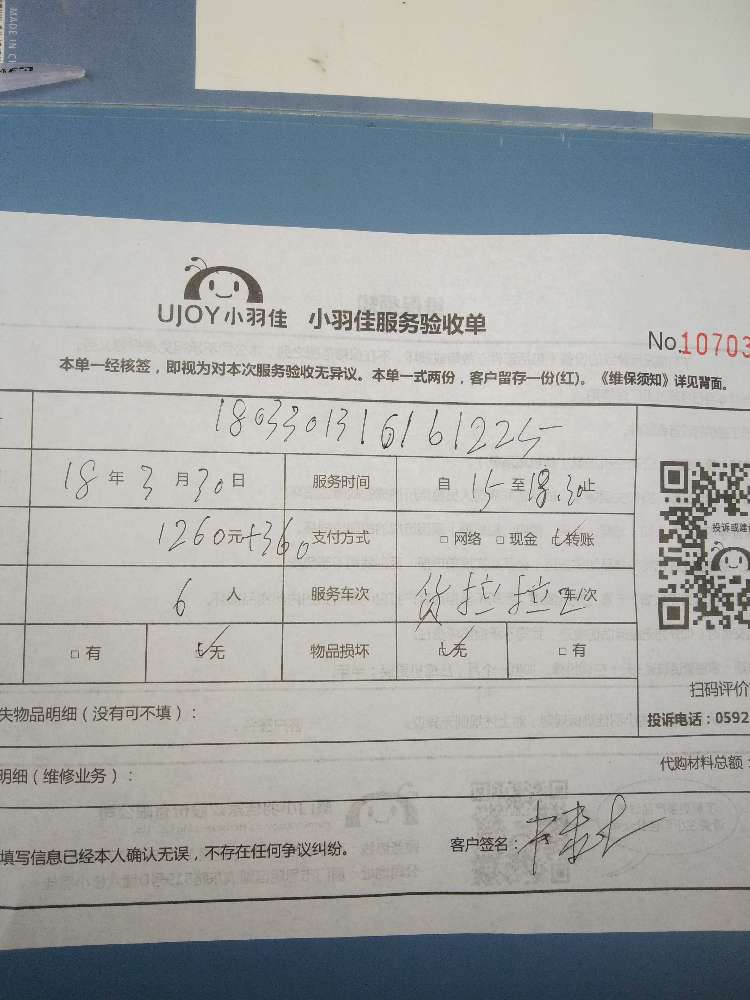 MADE IN C
UJOY小羽佳 小羽佳服务验收单
No.10703
本单一经核签，即视为对本次服务验收无异议。本单一式两份，客户留存一份(红)。《维保须知》详见背面。
1803301316161225
18年3月30日 服务时间 自15至18.30止
1260元+360 支付方式 □网络 □现金 ☑转账
投诉或建
6人 服务车次 货拉拉2车/次
□有 ☑无 物品损坏 ☑无 □有
扫码评价
失物品明细（没有可不填）： 投诉电话：0592
明细（维修业务）： 代购材料总额：
填写信息已经本人确认无误，不存在任何争议纠纷。 客户签名：